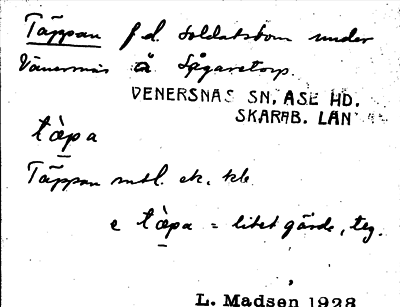 Täppan f.d. soldatsbom under
Vänersnäs å Sågaretorp.
VENERSNAS SN, ASE HD.
SKARAB. LAN
tàpa
Täppan mtl. ek. kle
e tàpa = litet gärde, teg.
L. Madsen 1928